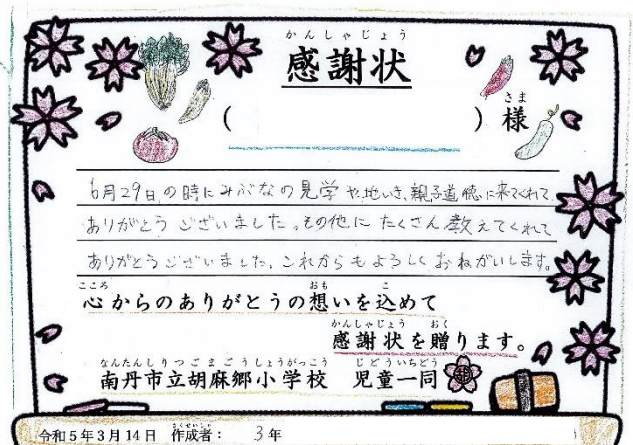 かんしゃじょう
感謝状
( ) 様
さま
6月29日の時にみぶなの見学や、地いき、親子道徳に来てくれて
ありがとうございました。その他にたくさん教えてくれて
ありがとうございました。これからもよろしくおねがいします。
こころ おも こ
心からのありがとうの想いを込めて
かんしゃじょう おく
感謝状を贈ります。
なんたんしりつごまごうしょうがっこう じどういちどう
南丹市立胡麻郷小学校 児童一同
さくせいしゃ
令和5年3月14日 作成者: 3年